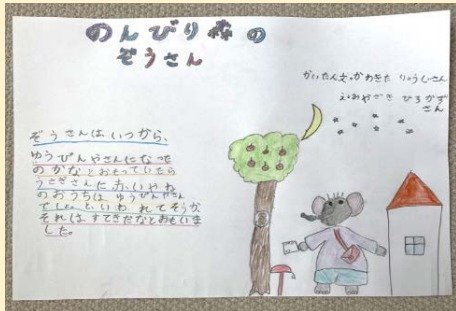 のんびり森の
ぞうさん
かいたん文.かわきた りょうじさん
え.おやざき ひろかず
さん
ぞうさんはいつから、
ゆうびんやさんになった
のかなとおもっていたら
うさぎさんに赤いやね
のおうちはゆうびんやさん
でしょ。といわれてそうか
それはすてきだなとおもいま
した。